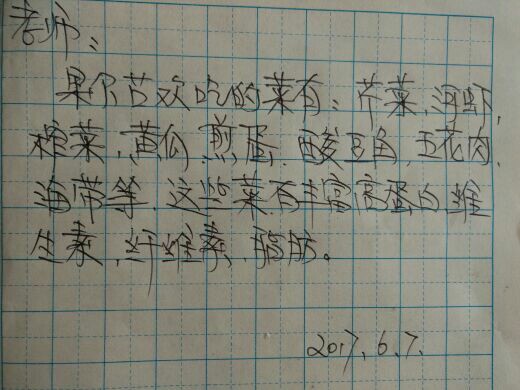 老师：
果尔喜欢吃的菜有：芹菜、河虾、
榨菜、黄瓜、煎蛋、酸豆角、五花肉、
海带等，这些菜有丰富高蛋白、维
生素、纤维素、脂肪。
2017.6.7.